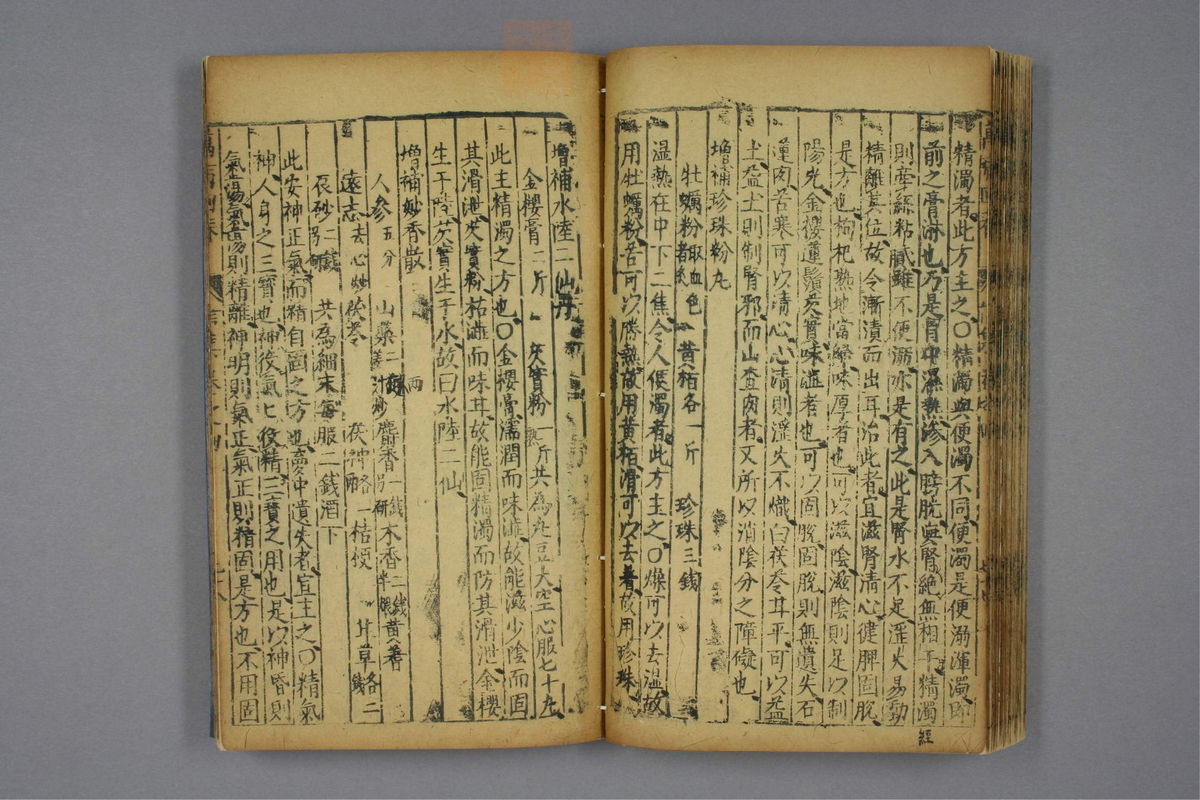 精濁者此方主之〇精濁與便濁不同便濁是便溺渾濁即
前之膏淋也乃是胃中濕熱滲入膀胱與腎絕無相干精濁
則牽絲粘膩雖不便溺亦是有之此是腎水不足淫火易動
精離其位故令漸漬而出耳治此者宜滋腎清心健脾固脫
是方也枸杞熟地當歸味厚者也可以滋陰滋陰則足以制
陽光金櫻蓮鬚芡實味澁者也可以固脫固脫則無遺失石
蓮肉苦寒可以清心心清則淫火不熾白茯苓甘平可以益
土益土則制腎邪而山查肉者又所以消陰分之障礙也
增補珍珠粉丸
牡蠣粉取血色者炙 黃栢各一斤 珍珠三錢
溫熱在中下二焦令人便濁者此方主之〇燥可以去溫故
用牡蠣粉苦可以勝熱故用黃栢滑可以去著故用珍珠
經
增補水陸二仙丹
金櫻膏一斤 芡實粉一斤熟共為丸豆大空心服七十丸
此主精濁之方也〇金櫻膏濡潤而味澁故能滋少陰而固
其滑泄芡實粉枯澁而味甘故能固精濁而防其滑泄金櫻
生于陸芡實生于水故曰水陸二仙
增補妙香散
人參五分 山藥二兩薑汁炒 麝香一錢另研 木香二錢半煨 黃蓍
遠志去心炒 茯苓 茯神各一 桔梗 甘草各二錢
辰砂二錢另研 共為細末每服二錢酒下
此安神正氣而精自固之方也夢中遺失者宜主之〇精氣
神人身之三寶也神役氣氣役精三寶之用也是以神昏則
氣蕩氣蕩則精離神明則氣正氣正則精固是方也不用固